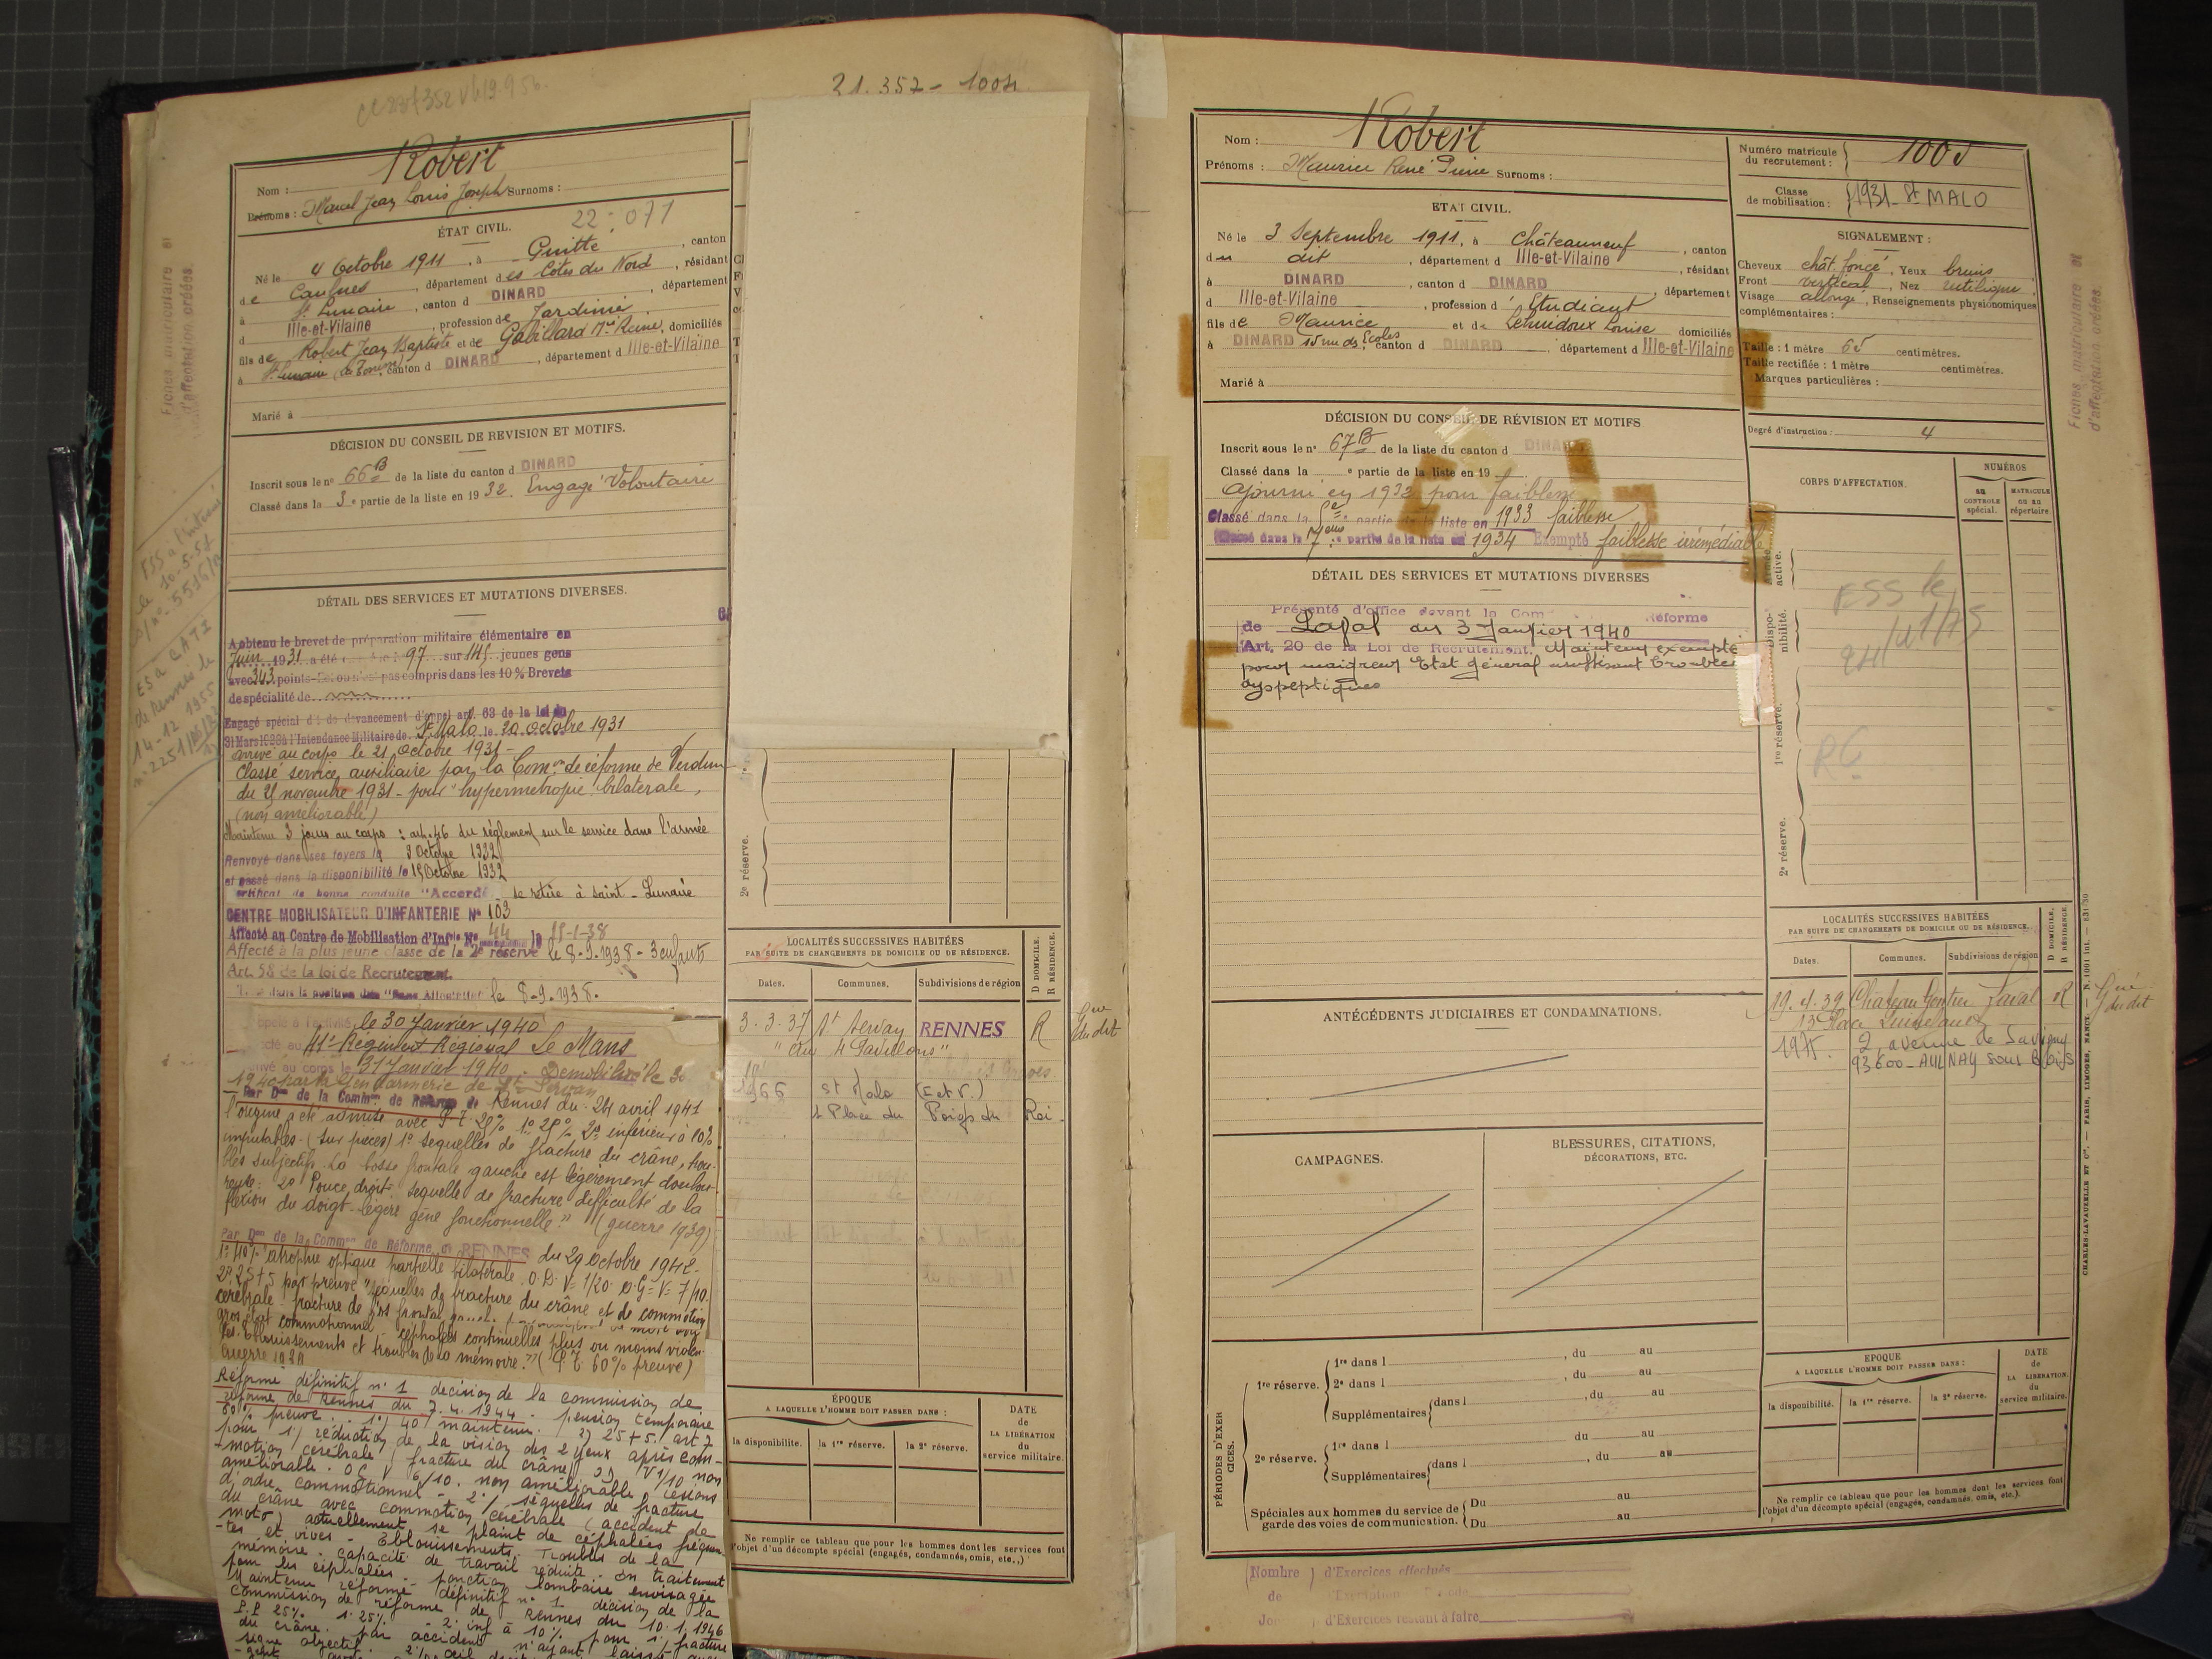 21.357 - 1004
Nom : Robert
Prénoms : Marcel Jean Louis Joseph Surnoms :
22.071
ÉTAT CIVIL.
Né le 4 Octobre 1911, à Guitté, canton
de Caulnes, département des Côtes du Nord, résidant
à St Lunaire, canton d DINARD, département
d Ille-et-Vilaine, profession de Jardinier
fils de Robert Jean Baptiste et de Gabillard Mie Reine, domiciliés
à St Lunaire, canton d DINARD, département d Ille-et-Vilaine
Marié à
DÉCISION DU CONSEIL DE REVISION ET MOTIFS.
Inscrit sous le n° 66 B de la liste du canton d DINARD
Classé dans la 3e partie de la liste en 1932. Engagé Volontaire
DÉTAIL DES SERVICES ET MUTATIONS DIVERSES.
A obtenu le brevet de préparation militaire élémentaire en
Juin 1931 a été 97 sur 145 jeunes gens
avec 343 points pas compris dans les 10% Brevets
de spécialité de
Engagé spécial dit de devancement d'appel art. 63 de la loi du
31 Mars 1928 à l'Intendance Militaire de St Malo le 20 octobre 1931
arrivé au corps le 21 octobre 1931 -
Classé service auxiliaire par la Comon de réforme de Verdun
du 25 novembre 1931 - pour "hypermétropie bilatérale,
(non améliorable)
Maintenu 3 jours au corps : art. 46 du règlement sur le service dans l'armée
Renvoyé dans ses foyers le 9 Octobre 1932
et passé dans la disponibilité le 15 Octobre 1932
certificat de bonne conduite "Accordé" se retire à saint-Lunaire
CENTRE MOBILISATEUR D'INFANTERIE N° 103
Affecté au Centre de Mobilisation d'Infie N° 44 le 15-1-38
Affecté à la plus jeune classe de la 2e réserve le 8-9-1938 - 3 enfants
Art. 58 de la loi de Recrutement.
dans la position dite "Sans Affectation" le 8-9-1938.
Rappelé à l'activité le 30 Janvier 1940
41e Régiment Régional Le Mans
arrivé au corps le 31 Janvier 1940. Démobilisé le 30
1940 par la Gendarmerie de St Servan
Par Don de la Common de Réforme de Rennes du 24 avril 1941
l'origine a été admise avec P.T. 20% 1° 20% 2° inférieur à 10%
imputables (sur pièces) 1° séquelles de fracture du crâne, trou-
bles subjectifs. La bosse frontale gauche est légèrement doulou-
reuse. 2° Pouce droit séquelle de fracture difficulté de la
flexion du doigt légère gêne fonctionnelle." (guerre 1939)
Par Don de la Common de Réforme de RENNES du 29 octobre 1942-
1° 40% "atrophie optique partielle bilatérale. O.D. V = 1/20 O.G = V = 7/10.
2° 25+5 par preuve "séquelles de fracture du crâne et de commotion
cérébrale - fracture de l'os frontal
gros état commotionnel - céphalées continuelles plus ou moins violen-
tes. Eblouissements et troubles de la mémoire." (P.T. 60% preuve)
Guerre 1939
Réformé définitif n° 1 décision de la commission de
réforme de Rennes du 7.4.1944. pension temporaire
60% preuve. 1°) 40 maintenu. 2) 25+5. art 7
pour 1) réduction de la vision des 2 yeux après com-
-motion cérébrale (fracture du crâne) OD V 1/10 non
améliorable. OG V 6/10. non améliorable lésions
d'ordre commotionnel - 2°/ séquelles de fracture
du crâne avec commotion cérébrale (accident de
moto) actuellement se plaint de céphalées fréquen-
-tes et vives Eblouissements. Troubles de la
mémoire. capacité de travail réduite. En traitement
pour les céphalées. ponction lombaire envisagée
Maintenu réformé définitif n° 1 décision de la
commission de réforme de Rennes du 10.1.1946
P.P 25% 1. 25% - 2. inf à 10% pour 1°/ fracture
du crâne. par accident n'ayant laissé
signe objectif.
2e réserve.
LOCALITÉS SUCCESSIVES HABITÉES
PAR SUITE DE CHANGEMENTS DE DOMICILE OU DE RÉSIDENCE.
D DOMICILE. R RÉSIDENCE.
Dates. Communes. Subdivisions de région
3-3-37 St Servan RENNES R
"du 4 Pavillons"
1966 St Malo (I et V.)
4 Place du Poids du Roi -
ÉPOQUE
A LAQUELLE L'HOMME DOIT PASSER DANS :
DATE de LA LIBÉRATION du service militaire.
la disponibilité. la 1re réserve. la 2e réserve.
Ne remplir ce tableau que pour les hommes dont les services font
l'objet d'un décompte spécial (engagés, condamnés, omis, etc.,)
Fiches matriculaire et
d'affectation créées.
Nom : Robert
Prénoms : Maurice René Pierre Surnoms :
Numéro matricule du recrutement : 1005
Classe de mobilisation : 1931 - St MALO
ETAT CIVIL.
Né le 3 Septembre 1911, à Châteauneuf, canton
du dit, département d Ille-et-Vilaine, résidant
à DINARD, canton d DINARD, département
d Ille-et-Vilaine, profession d'Etudiant
fils de Maurice et de Lehuidoux Louise domiciliés
à DINARD 15 rue des Ecoles, canton d DINARD, département d Ille-et-Vilaine
Marié à
SIGNALEMENT :
Cheveux chât. foncé, Yeux bruns
Front vertical, Nez rectiligne,
Visage allongé, Renseignements physionomiques
complémentaires :
Taille : 1 mètre 65 centimètres.
Taille rectifiée : 1 mètre centimètres.
Marques particulières :
Degré d'instruction : 4
DÉCISION DU CONSEIL DE RÉVISION ET MOTIFS
Inscrit sous le n° 67 B de la liste du canton d DINARD
Classé dans la e partie de la liste en 19
Ajourné en 1932 pour faiblesse
Classé dans la partie de la liste en 1933 faiblesse
Classé dans la 7e partie de la liste en 1934 Exempté faiblesse irrémédiable
DÉTAIL DES SERVICES ET MUTATIONS DIVERSES
Présenté d'office devant la Com Réforme
de Laval du 3 Janvier 1940
Art. 20 de la Loi de Recrutement. Maintenu exempté
pour maigreur Etat général insuffisant Troubles
dyspeptiques
CORPS D'AFFECTATION.
NUMÉROS
au CONTROLE spécial.
MATRICULE ou au répertoire.
Armée active.
Disponibilité.
1re réserve.
2e réserve.
ESS le
24/11/75
RC
ANTÉCÉDENTS JUDICIAIRES ET CONDAMNATIONS.
CAMPAGNES.
BLESSURES, CITATIONS,
DÉCORATIONS, ETC.
LOCALITÉS SUCCESSIVES HABITÉES
PAR SUITE DE CHANGEMENTS DE DOMICILE OU DE RÉSIDENCE.
D DOMICILE. R RÉSIDENCE.
Dates. Communes. Subdivisions de région
19.4.39 Château Gontier Laval R
1975. 2, avenue de Savigny
93600 - AULNAY sous Bois
PÉRIODES D'EXERCICES.
1re réserve. 1re dans l , du au
2e dans l , du au
Supplémentaires dans l , du au
2e réserve. 1re dans l du au
Supplémentaires dans l , du au
Spéciales aux hommes du service de garde des voies de communication. Du au
Du au
EPOQUE
A LAQUELLE L'HOMME DOIT PASSER DANS :
DATE de LA LIBERATION du service militaire.
la disponibilité. la 1re réserve. la 2e réserve.
Ne remplir ce tableau que pour les hommes dont les services font
l'objet d'un décompte spécial (engagés, condamnés, omis, etc.).
Nombre d'Exercices effectués
de d'Exemption
Jo d'Exercices restant à faire
CHARLES-LAVAUZELLE ET Cie. — PARIS, LIMOGES, NANCY.
Fiches matriculaire et
d'affectation créées.